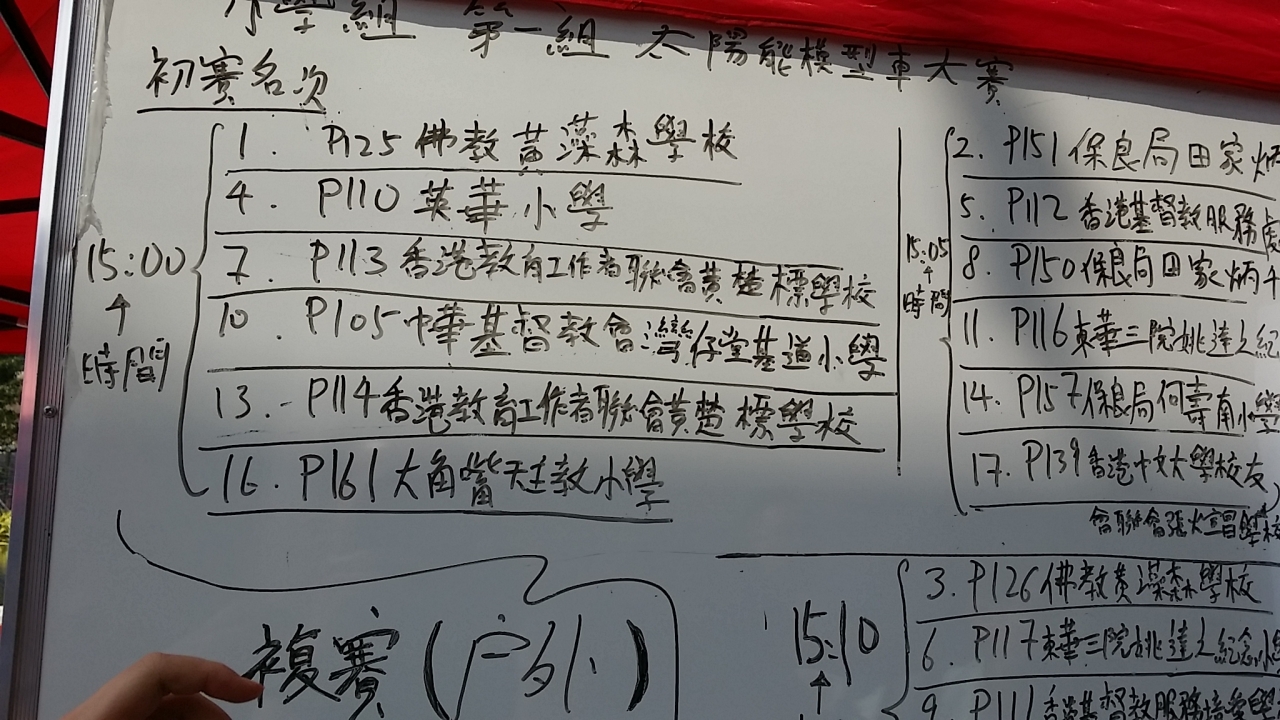 小學組 第一組 太陽能模型車大賽
初賽名次
15:00
時間
1. P125 佛教黃藻森學校
4. P110 英華小學
7. P113 香港教育工作者聯會黃楚標學校
10. P105 中華基督教會灣仔堂基道小學
13. P114 香港教育工作者聯會黃楚標學校
16. P161 大角嘴天主教小學
15:05
時間
2. P151 保良局田家炳
5. P112 香港基督教服務處
8. P150 保良局田家炳千
11. P116 東華三院姚達之紀
14. P157 保良局何壽南小學
17. P139 香港中文大學校友
會聯會張煊昌學校
複賽(戶外)
15:10
3. P126 佛教黃藻森學校
6. P117 東華三院姚達之紀念小
9. P111 香港基督教服務處培愛學